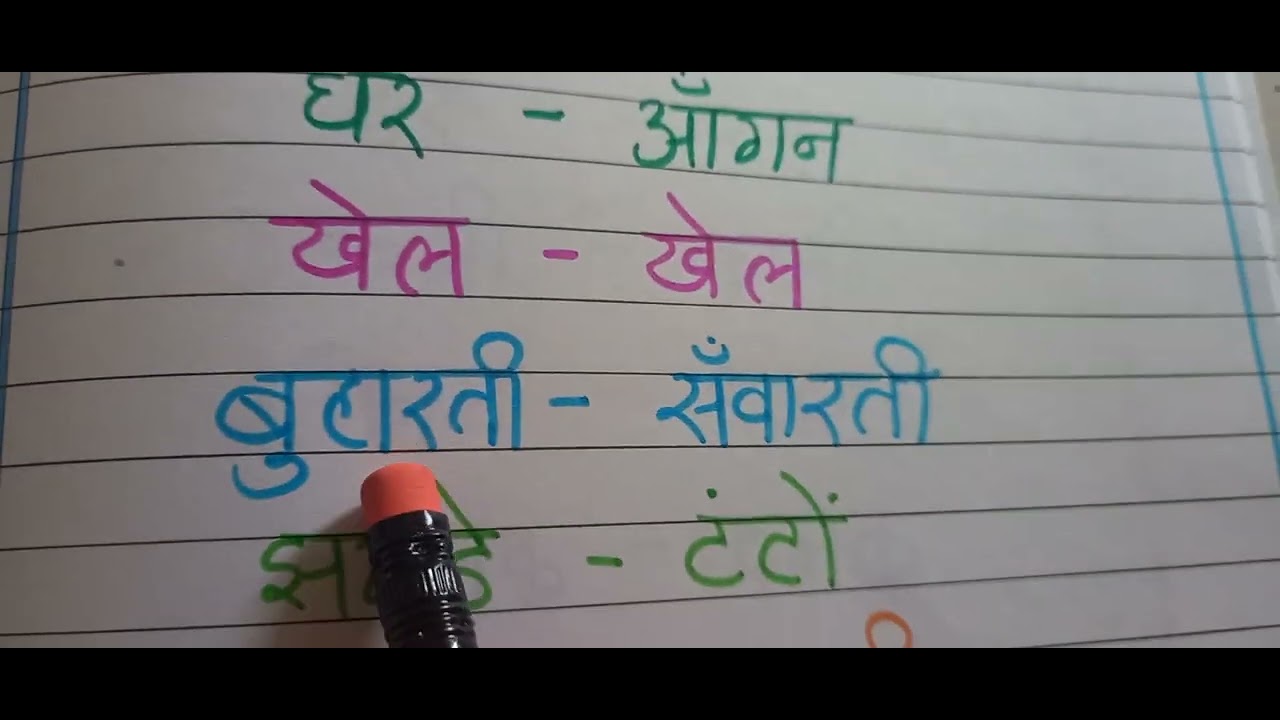 घर - आँगन
खेल - खेल
बुहारती - सँवारती
- टंटों